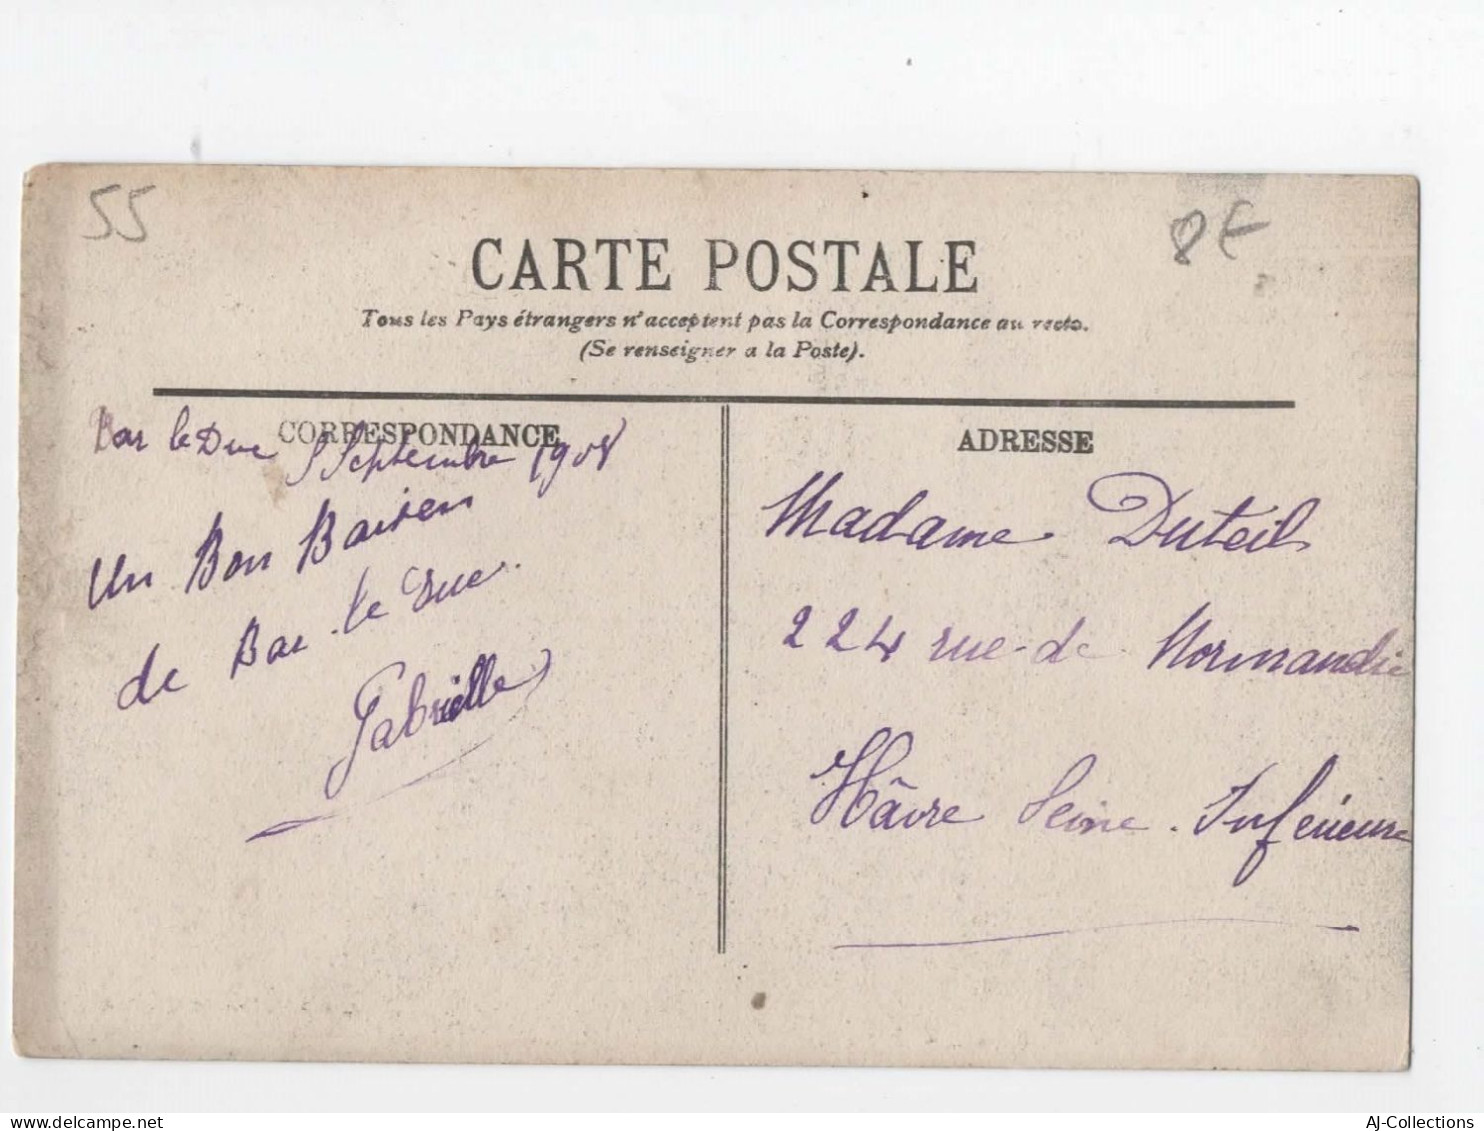 55
8€
CARTE POSTALE
Tous les Pays étrangers n'acceptent pas la Correspondance au recto.
(Se renseigner a la Poste).
CORRESPONDANCE
Bar le Duc Septembre 1908
Un Bon Baiser
de Bar-le Duc.
Gabrielle
ADRESSE
Madame Duteil
224 rue de Normandie
Hâvre Seine-Inférieure
delcampe.net
AJ-Collections